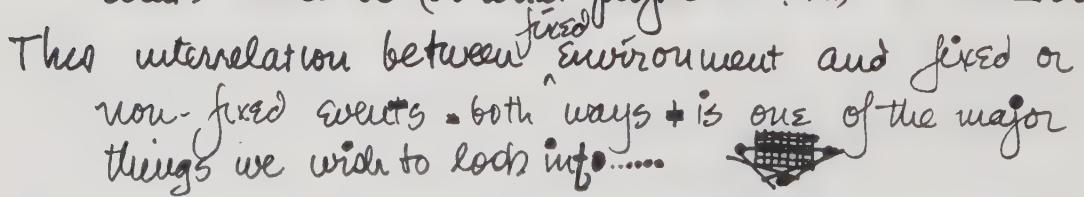 fixed
This interrelation between ^ environment and fixed or
non-fixed events - both ways - is one of the major
things we wish to look into......